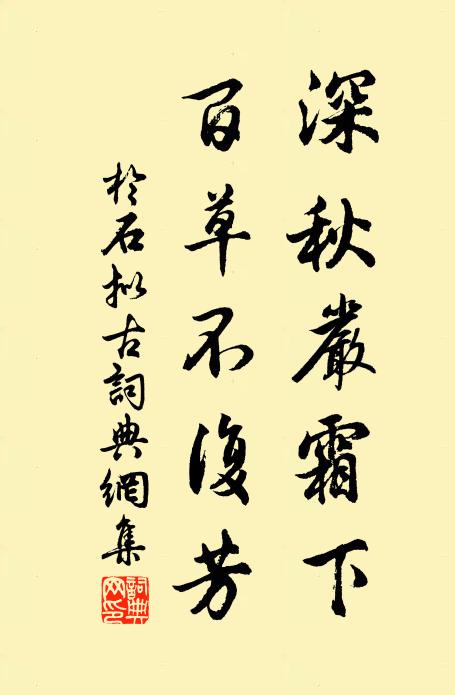 深秋嚴霜下
百草不復芳
於石拟古詞典網集
詞典網印